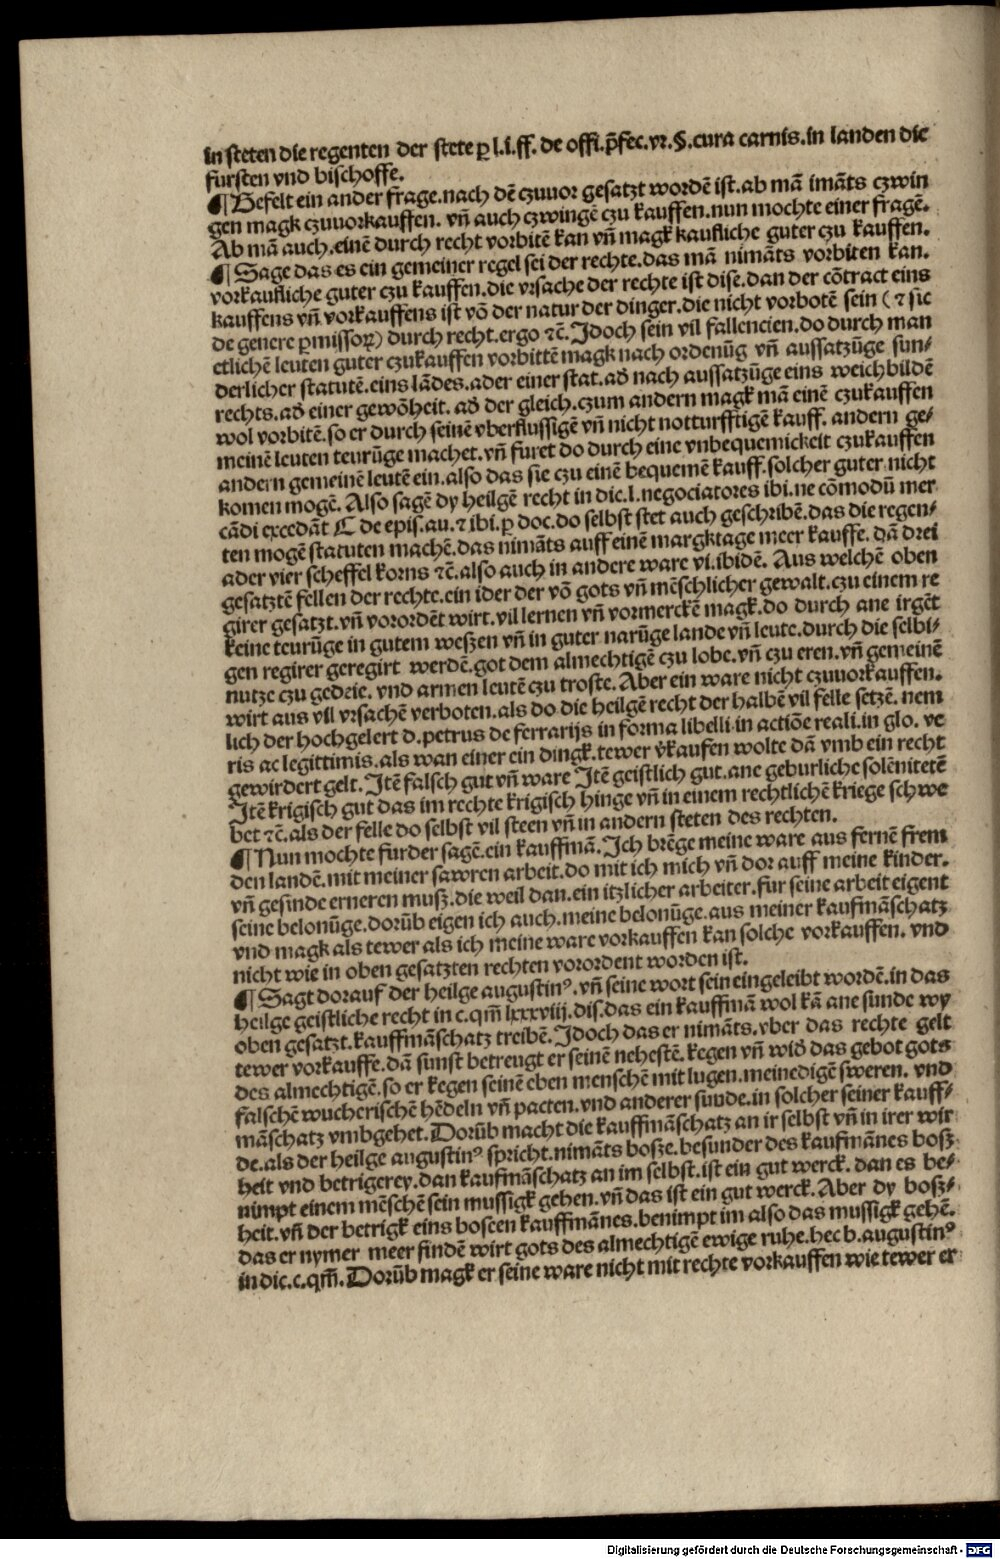 in steten die regenten der stete ꝑ l.i.ff. de offi.p̄fec.vr.§.cura carnis.in landen die
fursten vnd bischoffe.
¶ Befelt ein ander frage.nach dē czuuor gesatzt wordē ist.ab mā imāts czwin
gen magk czuuorkauffen. vn̄ auch czwingē czu kauffen.nun mochte einer fragē.
Ab mā auch.einē durch recht vorbitē kan vn̄ magk kaufliche guter czu kauffen.
¶ Sage das es ein gemeiner regel sei der rechte.das mā nimāts vorbiten kan.
vorkaufliche guter czu kauffen.die vrsache der rechte ist dise.dan der cōtract eins
kauffens vn̄ vorkauffens ist vō der natur der dinger.die nicht vorbotē sein (⁊ sic
de genere ꝑmissoꝝ) durch recht.ergo ⁊c̄. Jdoch sein vil fallencien.do durch man
etlichē leuten guter czukauffen vorbittē magk nach ordenūg vn̄ aussatzūge sun⸗
derlicher statutē.eins lādes.ader einer stat.ad̄ nach aussatzūge eins weichbildē
rechts.ad̄ einer gewōheit. ad̄ der gleich.czum andern magk mā einē czukauffen
wol vorbitē.so er durch seinē vberflussigē vn̄ nicht notturfftigē kauff. andern ge⸗
meinē leuten teurūge machet.vn̄ furet do durch eine vnbequemickeit czukauffen
andern gemeinē leutē ein.also das sie czu einē bequemē kauff.solcher guter nicht
komen mogē. Also sagē dy heilgē recht in dic.l.negociatores ibi.ne cōmodū mer
cādi excedāt C de epis.au.⁊ ibi.ꝑ doc.do selbst stet auch geschribē.das die regen⸗
ten mogē statuten machē.das nimāts auff einē margktage meer kauffe. dā drei
ader vier scheffel korns ⁊c̄.also auch in andere ware vi.ibidē. Aus welchē oben
gesatztē fellen der rechte.ein ider der vō gots vn̄ mēschlicher gewalt.czu einem re
girer gesatzt.vn̄ vorordēt wirt.vil lernen vn̄ vormerckē magk.do durch ane irgēt
keine teurūge in gutem weßzen vn̄ in guter narūge lande vn̄ leute.durch die selbi⸗
gen regirer geregirt werdē.got dem almechtigē czu lobe.vn̄ czu eren.vn̄ gemeinē
nutze czu gedeie. vnd armen leutē czu troste. Aber ein ware nicht czuuorkauffen.
wirt aus vil vrsachē verboten.als do die heilgē recht der halbē vil felle setzē. nem
lich der hochgelert d.petrus de ferrarijs in forma libelli.in actiōe reali.in glo. ve
ris ac legittimis.als wan einer ein dingk.tewer v̄kaufen wolte dā vmb ein recht
gewirdert gelt. Jtē falsch gut vn̄ ware Jtē geistlich gut.ane geburliche solēnitetē
Jtē krigisch gut das im rechte krigisch hinge vn̄ in einem rechtlichē kriege schwe
bet ⁊c̄.als der felle do selbst vil steen vn̄ in andern steten des rechten.
¶ Nun mochte furder sagē.ein kauffmā. Jch brēge meine ware aus fernē frem
den landē.mit meiner sawren arbeit.do mit ich mich vn̄ dor auff meine kinder.
vn̄ gesinde erneren muß.die weil dan.ein itzlicher arbeiter.fur seine arbeit eigent
seine belonūge.dorūb eigen ich auch.meine belonūge.aus meiner kaufmāschatz
vnd magk als tewer als ich meine ware vorkauffen kan solche vorkauffen. vnd
nicht wie in oben gesatzten rechten vorordent worden ist.
¶ Sagt dorauf der heilge augustinꝰ.vn̄ seine wort sein eingeleibt wordē.in das
heilge geistliche recht in c.qm̄ lxxxviij.dis.das ein kauffmā wol kā ane sunde wy
oben gesatzt.kauffmāschatz treibē. Jdoch das er nimāts.vber das rechte gelt
tewer vorkauffe.dā sunst betreugt er seinē nehestē.kegen vn̄ wid̄ das gebot gots
des almechtigē.so er kegen seinē eben menschē mit lugen.meinedigē sweren. vnd
falschē wucherischē hēdeln vn̄ pacten.vnd anderer sunde.in solcher seiner kauff⸗
māschatz vmbgehet.Dorūb macht die kauffmāschatz an ir selbst vn̄ in irer wir
de.als der heilge augustinꝰ spricht.nimāts boßze.besunder des kaufmānes boß
heit vnd betrigerey.dan kaufmāschatz an im selbst.ist ein gut werck. dan es be⸗
nimpt einem mēschē sein mussigk gehen.vn̄ das ist ein gut werck.Aber dy boß⸗
heit.vn̄ der betrigk eins boseen kauffmānes.benimpt im also das mussigk gehē.
das er nymer meer findē wirt gots des almechtigē ewige ruhe.hec b.augustinꝰ
in dic.c.qm̄.Dorūb magk er seine ware nicht mit rechte vorkauffen wie tewer er
Digitalisierung gefördert durch die Deutsche Forschungsgemeinschaft - DFG